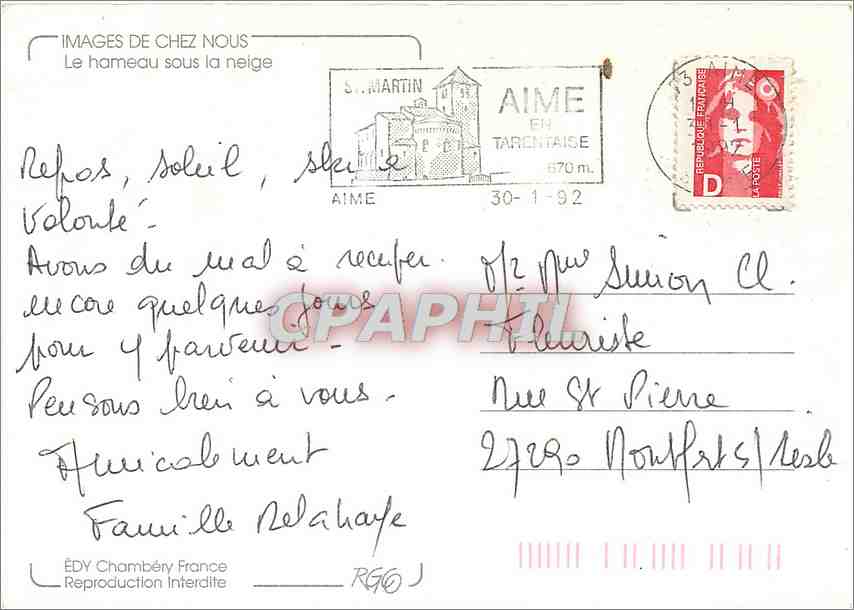 IMAGES DE CHEZ NOUS
Le hameau sous la neige
ST. MARTIN
AIME
EN
TARENTAISE
670 m.
AIME
30-1-92
AIME
REPUBLIQUE FRANÇAISE
D
LA POSTE
Repos, soleil, ski à
volonté -
Avons du mal à récupér.
encore quelques jours
pour y parvenir -
Pensons bien à vous -
Amicalement
Famille Delahaye
Mr Mme Simon Cl.
Fleuriste
Rue St Pierre
27290 Montfort s/ Risle
CPAPHIL
ÉDY Chambéry France
Reproduction Interdite
RG6